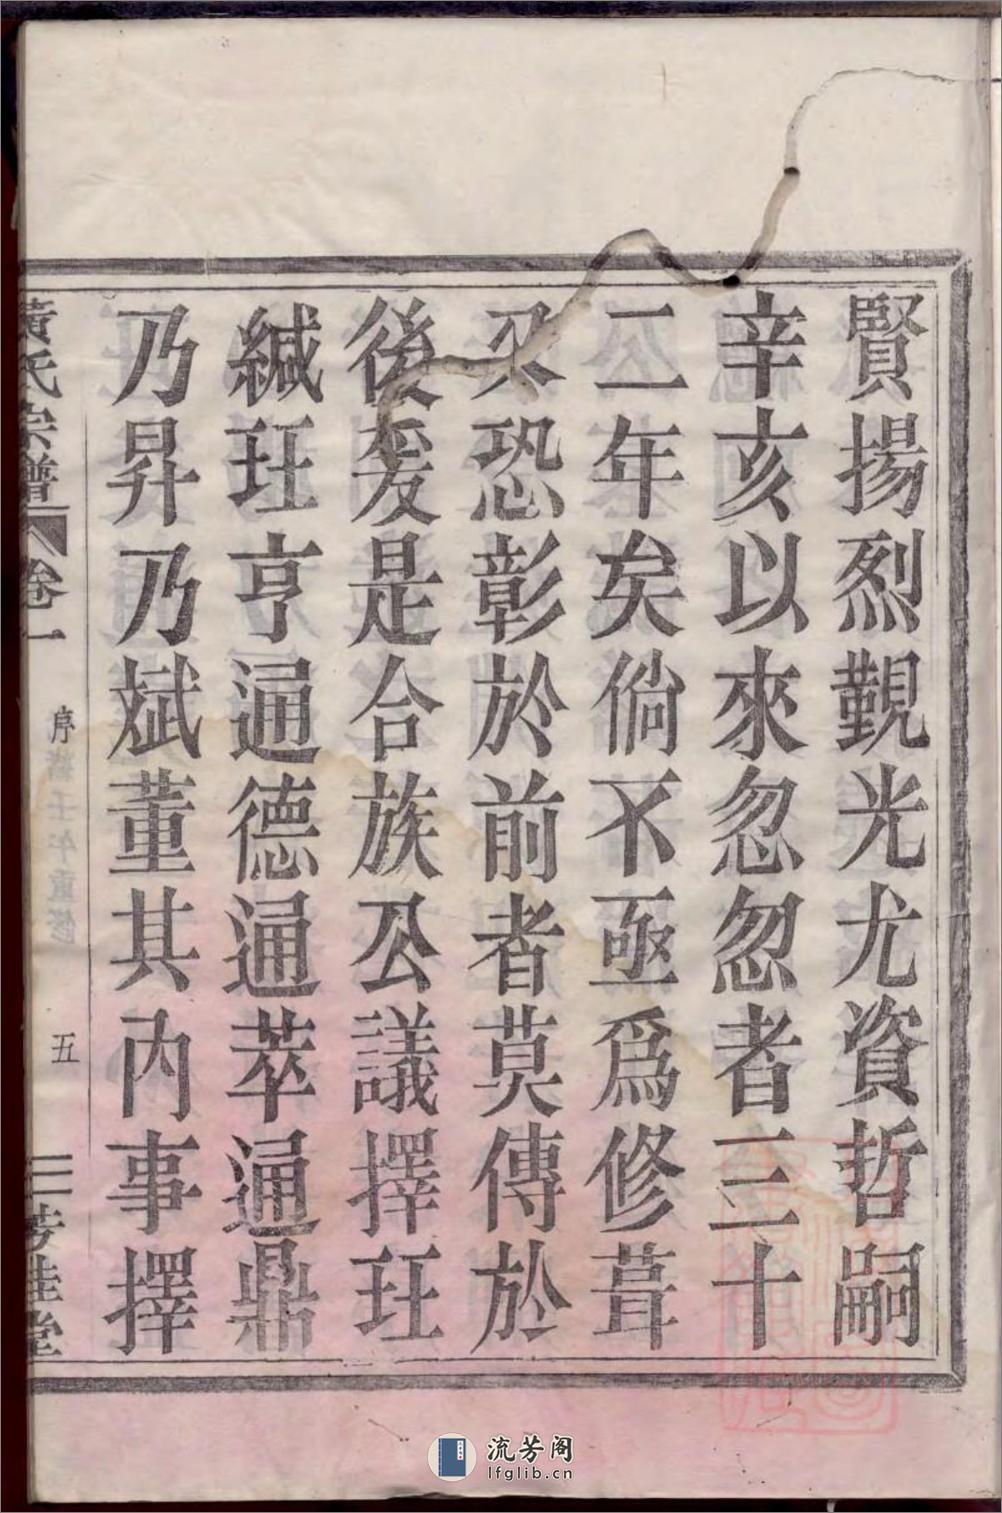 賢揚烈觀光尤資哲嗣
辛亥以來忽忽者三十
二年矣倘不亟爲修葺
又恐彰於前者莫傳於
後爰是合族公議擇珏
緘珏亨通德通萃通鼎
乃昇乃斌董其內事擇
黃氏宗譜 卷一 序 五 三芳桂堂
流芳阁
lfglib.cn